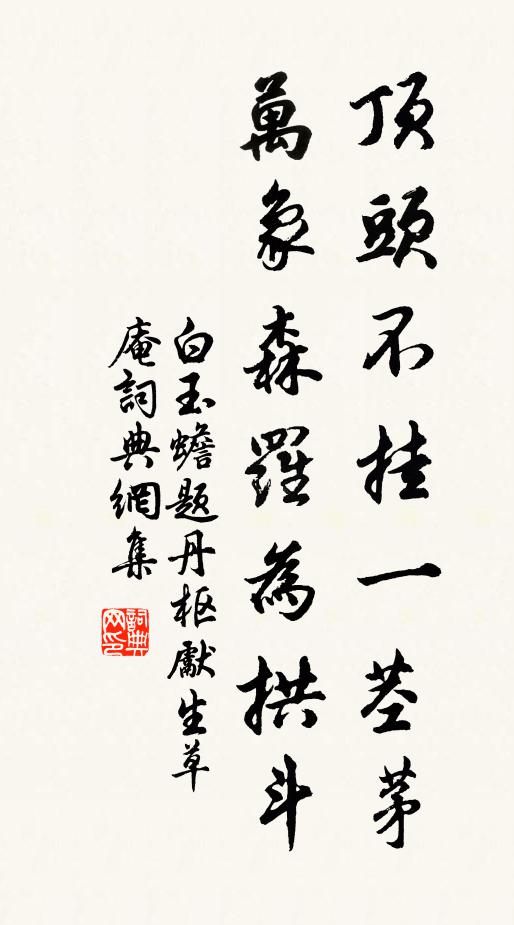 頂頭不挂一莖茅
萬象森羅為拱斗
白玉蟾題丹枢獻生草
庵詞典網集
詞典网印